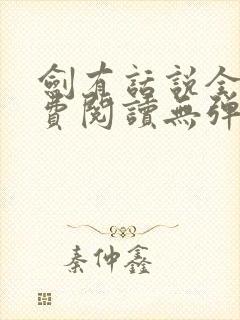 劍有話說全
費閱讀無彈
秦仲鑫